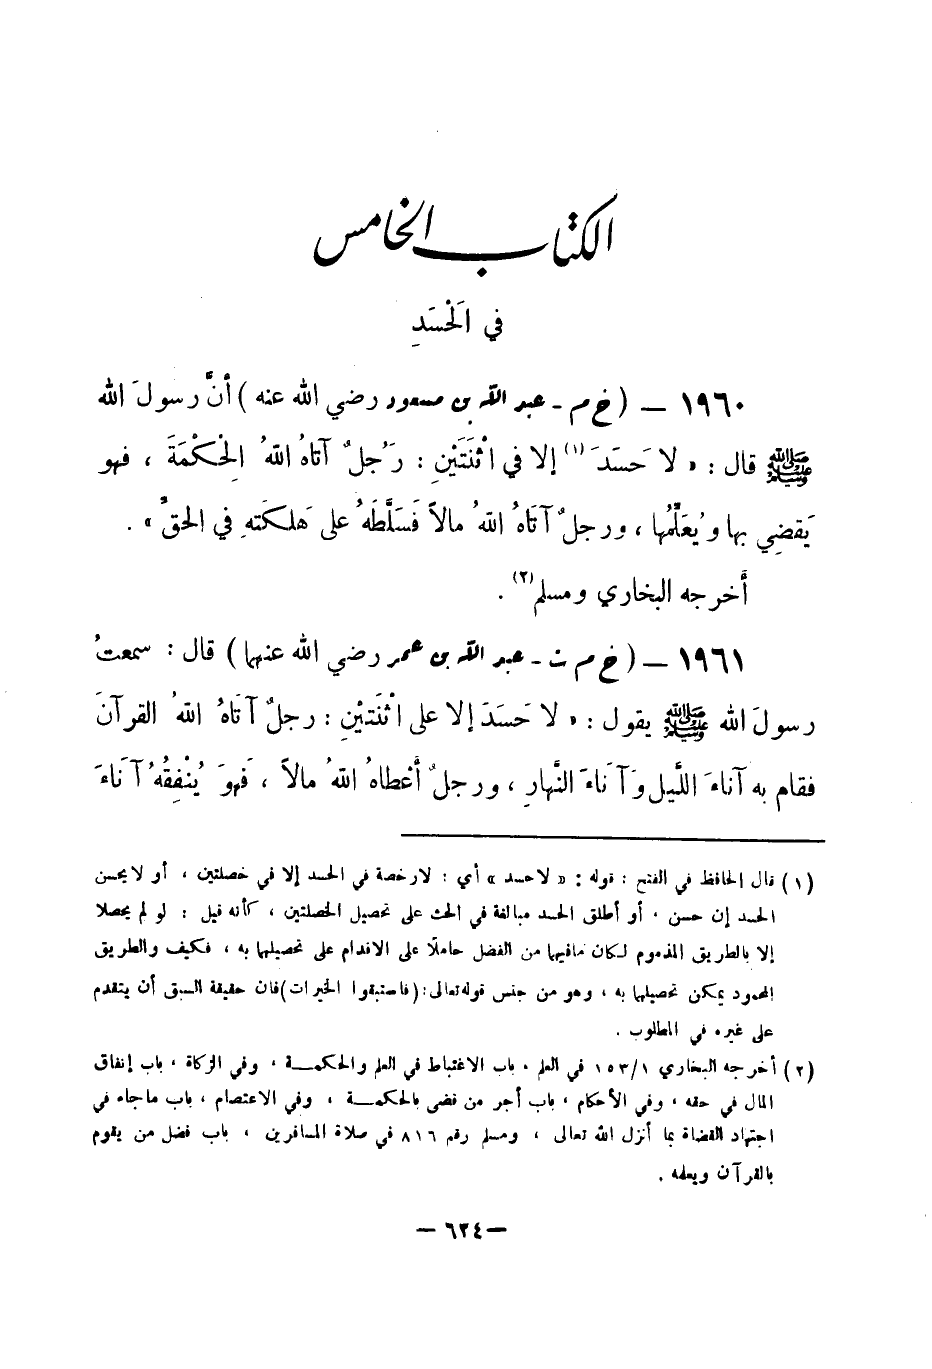 الكتاب الخامس
في الحَسَدِ
١٩٦٠ — (خ م - عبد الله بن مسعود رضي الله عنه) أنَّ رسولَ الله
ﷺ قال: «لا حَسَدَ (١) إلا في اثْنَتَيْنِ: رَجُلٌ آتاهُ اللهُ الحِكْمَةَ، فهو
يَقضِي بها ويُعَلِّمُها، ورجلٌ آتَاهُ اللهُ مالاً فَسَلَّطَهُ على هَلَكَتهِ في الحقِّ».
أخرجه البخاري ومسلم (٢).
١٩٦١ — (خ م ت - عبد الله بن عمر رضي الله عنهما) قال: سمعتُ
رسولَ الله ﷺ يقول: «لا حَسَدَ إلا على اثْنَتَيْنِ: رجلٌ آتَاهُ اللهُ القرآنَ
فقام به آناءَ اللَّيل وَآنَاءَ النَّهارِ، ورجلٌ أَعْطاهُ اللهُ مالاً، فَهوَ يُنْفِقُهُ آنَاءَ
(١) قال الحافظ في الفتح: قوله: «لا حسد» أي: لا رخصة في الحسد إلا في خصلتين، أو لا يحسن
الحسد إن حسن، أو أطلق الحسد مبالغة في الحث على تحصيل الخصلتين، كأنه قيل: لو لم يحصلا
إلا بالطريق المذموم لكان مافيهما من الفضل حاملًا على الاقدام على تحصيلهما به، فكيف والطريق
المحمود يمكن تحصيلهما به، وهو من جنس قوله تعالى: (فاستبقوا الخيرات) فان حقيقة السبق أن يتقدم
على غيره في المطلوب.
(٢) أخرجه البخاري ١٥٣/١ في العلم، باب الاغتباط في العلم والحكمـــة، وفي الزكاة، باب إنفاق
المال في حقه، وفي الأحكام، باب أجر من قضى بالحكمـــة، وفي الاعتصام، باب ماجاء في
اجتهاد القضاة بما أنزل الله تعالى، ومسلم رقم ٨١٦ في صلاة المسافرين، باب فضل من يقوم
بالقرآن ويعلمه.
— ٦٢٤ —